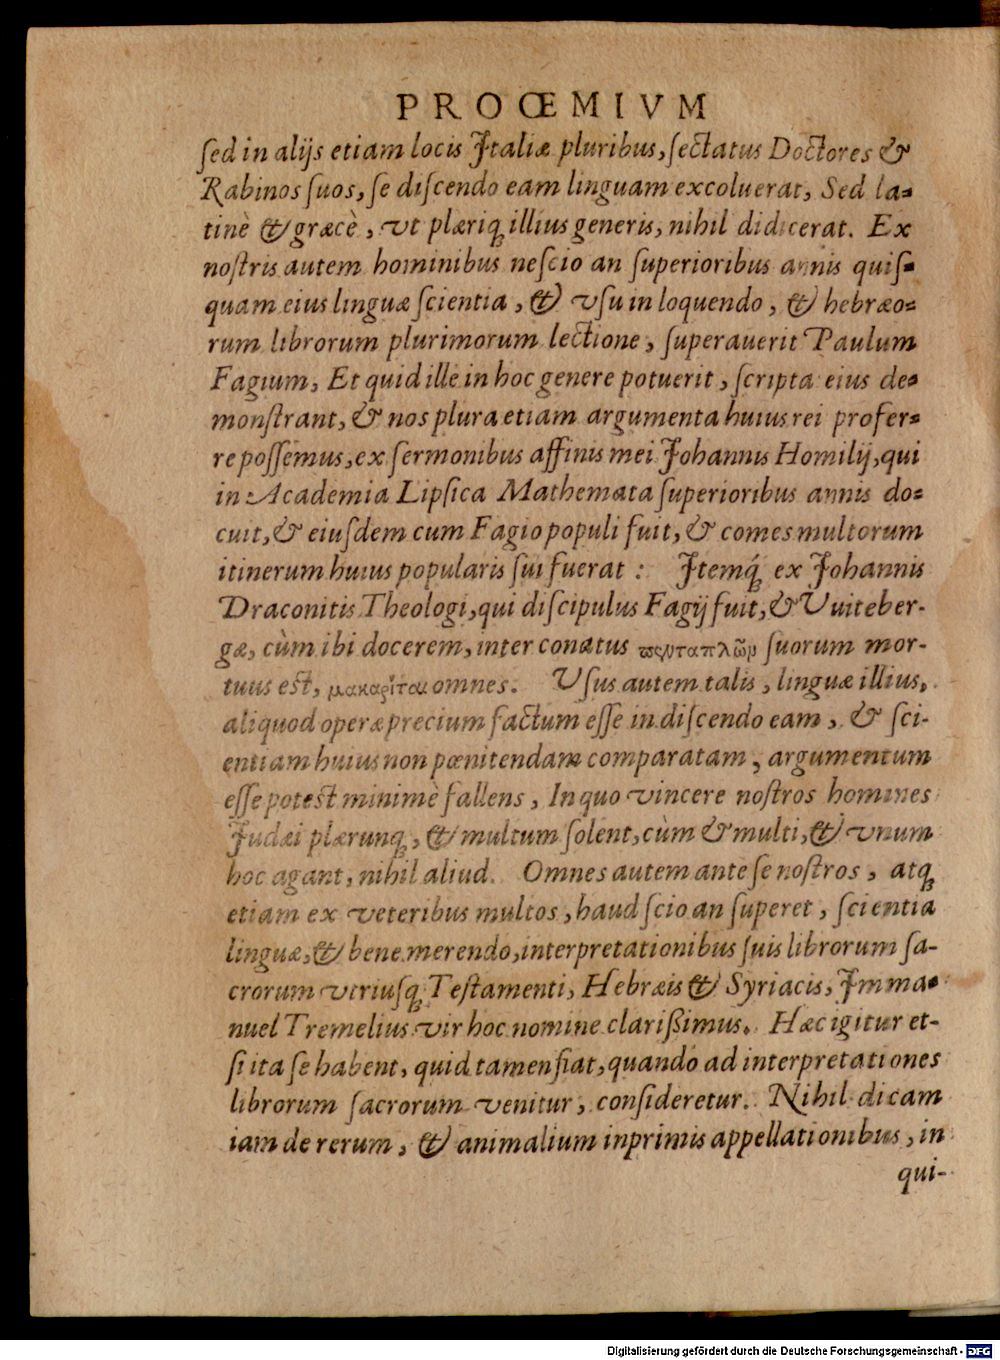 PROŒMIVM
ſed in alijs etiam locis Italiæ pluribus, ſectatus Doctores &
Rabinos ſuos, ſe diſcendo eam linguam excoluerat, Sed la-
tinè & græcè, vt plæriq́ illius generis, nihil didicerat. Ex
noſtris autem hominibus neſcio an ſuperioribus annis quiſ-
quam eius linguæ ſcientia, & vſu in loquendo, & hebræo-
rum librorum plurimorum lectione, ſuperauerit Paulum
Fagium, Et quid ille in hoc genere potuerit, ſcripta eius de-
monſtrant, & nos plura etiam argumenta huius rei profer-
re poſſemus, ex ſermonibus affinis mei Johannis Homilij, qui
in Academia Lipſica Mathemata ſuperioribus annis do-
cuit, & eiuſdem cum Fagio populi fuit, & comes multorum
itinerum huius popularis ſui fuerat: Itemq́ ex Johannis
Draconitis Theologi, qui diſcipulus Fagij fuit, & Vuiteber-
gæ, cùm ibi docerem, inter conatus πενταπλῶν ſuorum mor-
tuus eſt, μακαρῖται omnes. Vſus autem talis, linguæ illius,
aliquod operæprecium factum eſſe in diſcendo eam, & ſci-
entiam huius non pœnitendam comparatam, argumentum
eſſe poteſt minimè fallens, In quo vincere noſtros homines
Judæi plærunq́, & multum ſolent, cùm & multi, & vnum
hoc agant, nihil aliud. Omnes autem ante ſe noſtros, atq́
etiam ex veteribus multos, haud ſcio an ſuperet, ſcientia
linguæ, & bene merendo, interpretationibus ſuis librorum ſa-
crorum vtriuſq́ Teſtamenti, Hebræis & Syriacis, Imma-
nuel Tremelius vir hoc nomine clarißimus. Hæc igitur et-
ſi ita ſe habent, quid tamen fiat, quando ad interpretationes
librorum ſacrorum venitur, conſideretur. Nihil dicam
iam de rerum, & animalium inprimis appellationibus, in
qui-
Digitalisierung gefördert durch die Deutsche Forschungsgemeinschaft - DFG